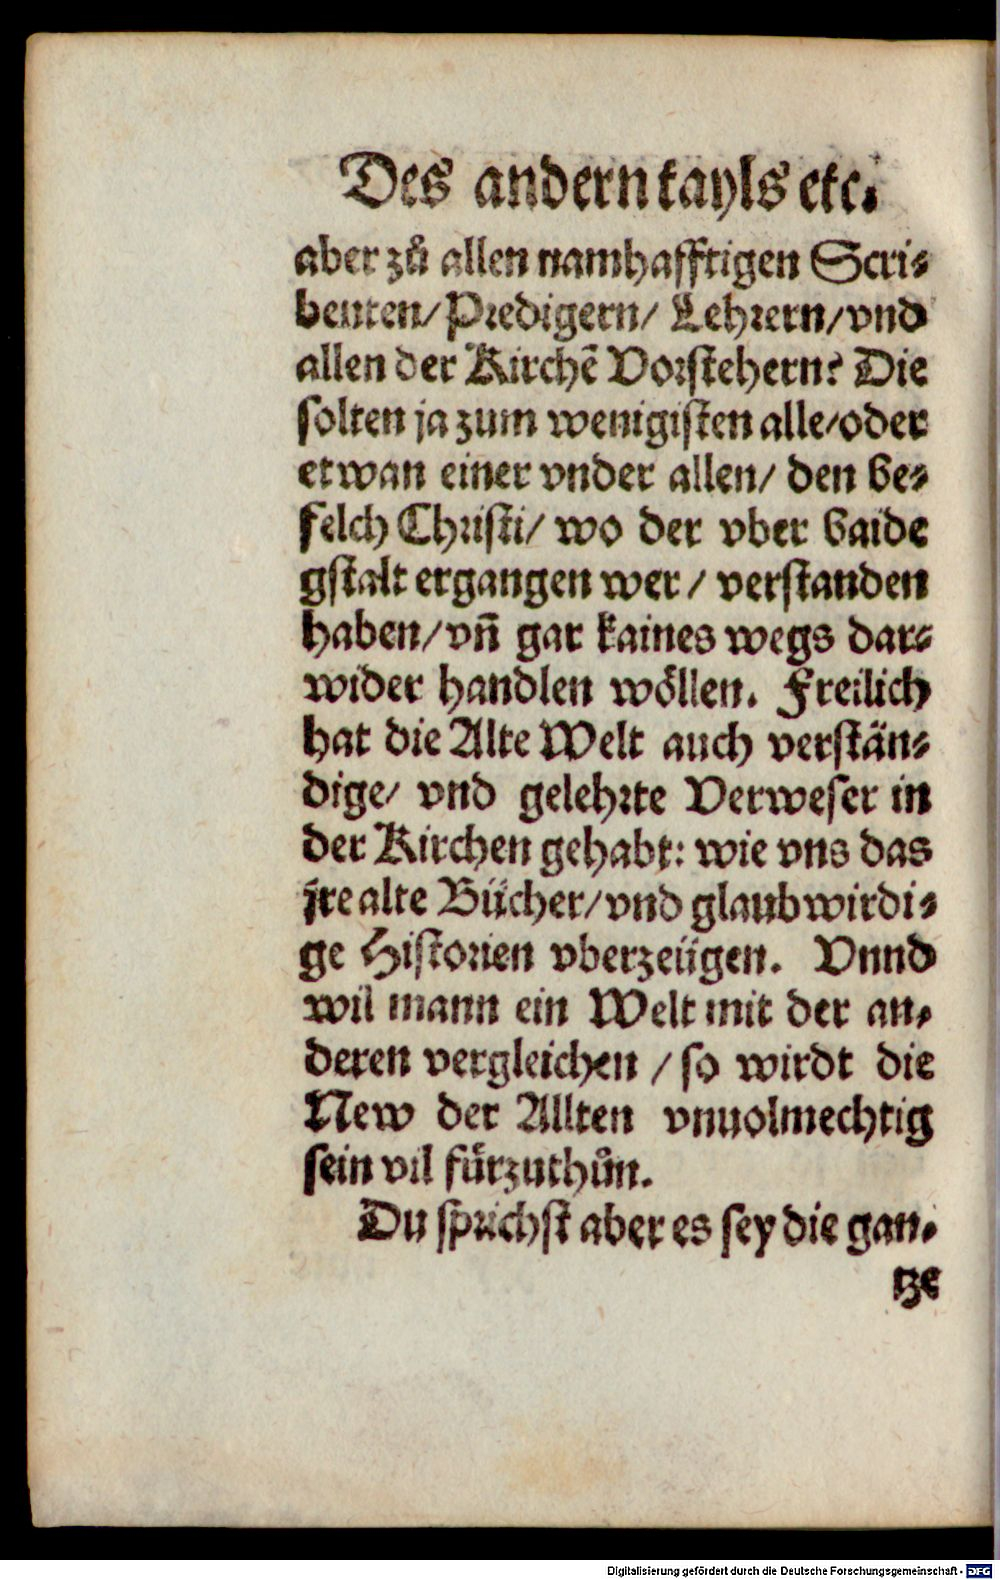 Des andern tayls etc.
aber zů allen namhafftigen Scri-
benten/ Predigern/ Lehrern/ vnd
allen der Kirchē Vorstehern? Die
solten ja zum wenigisten alle/ oder
etwan einer vnder allen/ den be-
felch Christi/ wo der vber baide
gstalt ergangen wer/ verstanden
haben/ vñ gar kaines wegs dar-
wider handlen wöllen. Freilich
hat die Alte Welt auch verstän-
dige/ vnd gelehrte Verweser in
der Kirchen gehabt: wie vns das
jre alte Bücher/ vnd glaubwirdi-
ge Historien vberzeügen. Vnnd
wil mann ein Welt mit der an-
deren vergleichen/ so wirdt die
New der Allten vnuolmechtig
sein vil fürzuthůn.
Du sprichst aber es sey die gan-
tze
Digitalisierung gefördert durch die Deutsche Forschungsgemeinschaft - DFG